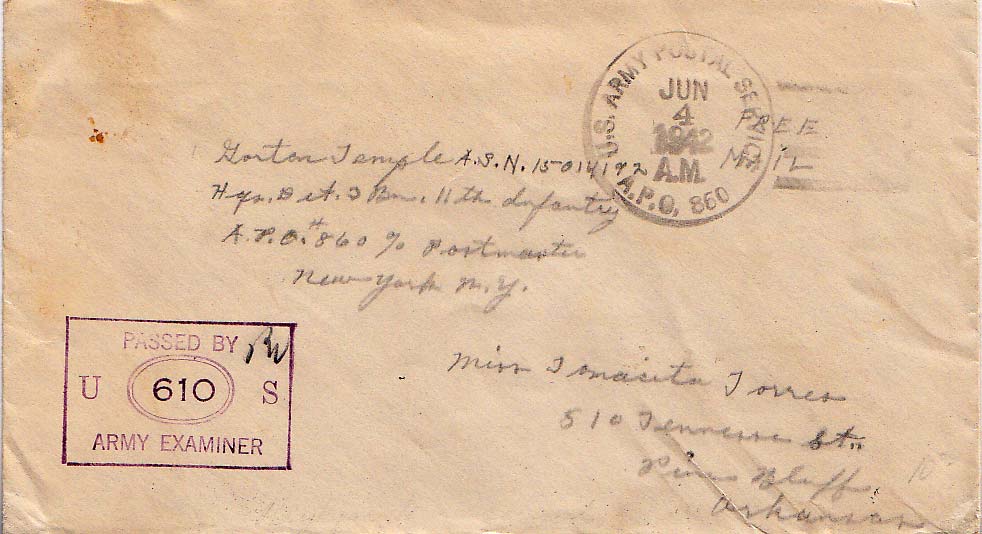 U.S. ARMY POSTAL SERVICE
JUN
4
1942
A.M.
A.P.O. 860
FREE
MAIL
Gorton Temple A.S.N. 15014192
Hqs. Det. 3 Bn. 11th Infantry
A.P.O.# 860 % Postmaster
New York N.Y.
PASSED BY
U 610 S
ARMY EXAMINER
Miss Tomacita Torres
510 Tennesse St.
Pine Bluff
Arkansas
10